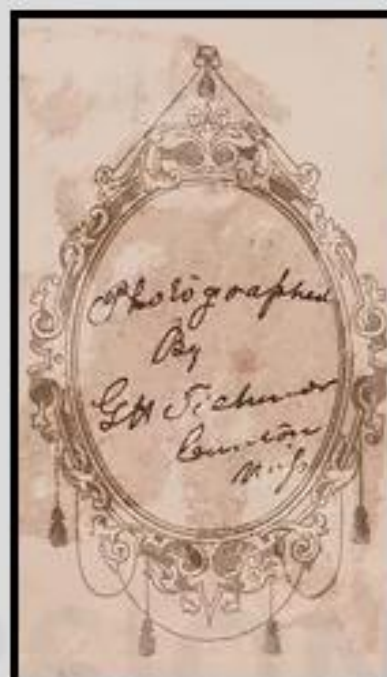 Photographed
By
GH Tichenor
Canton
Miss